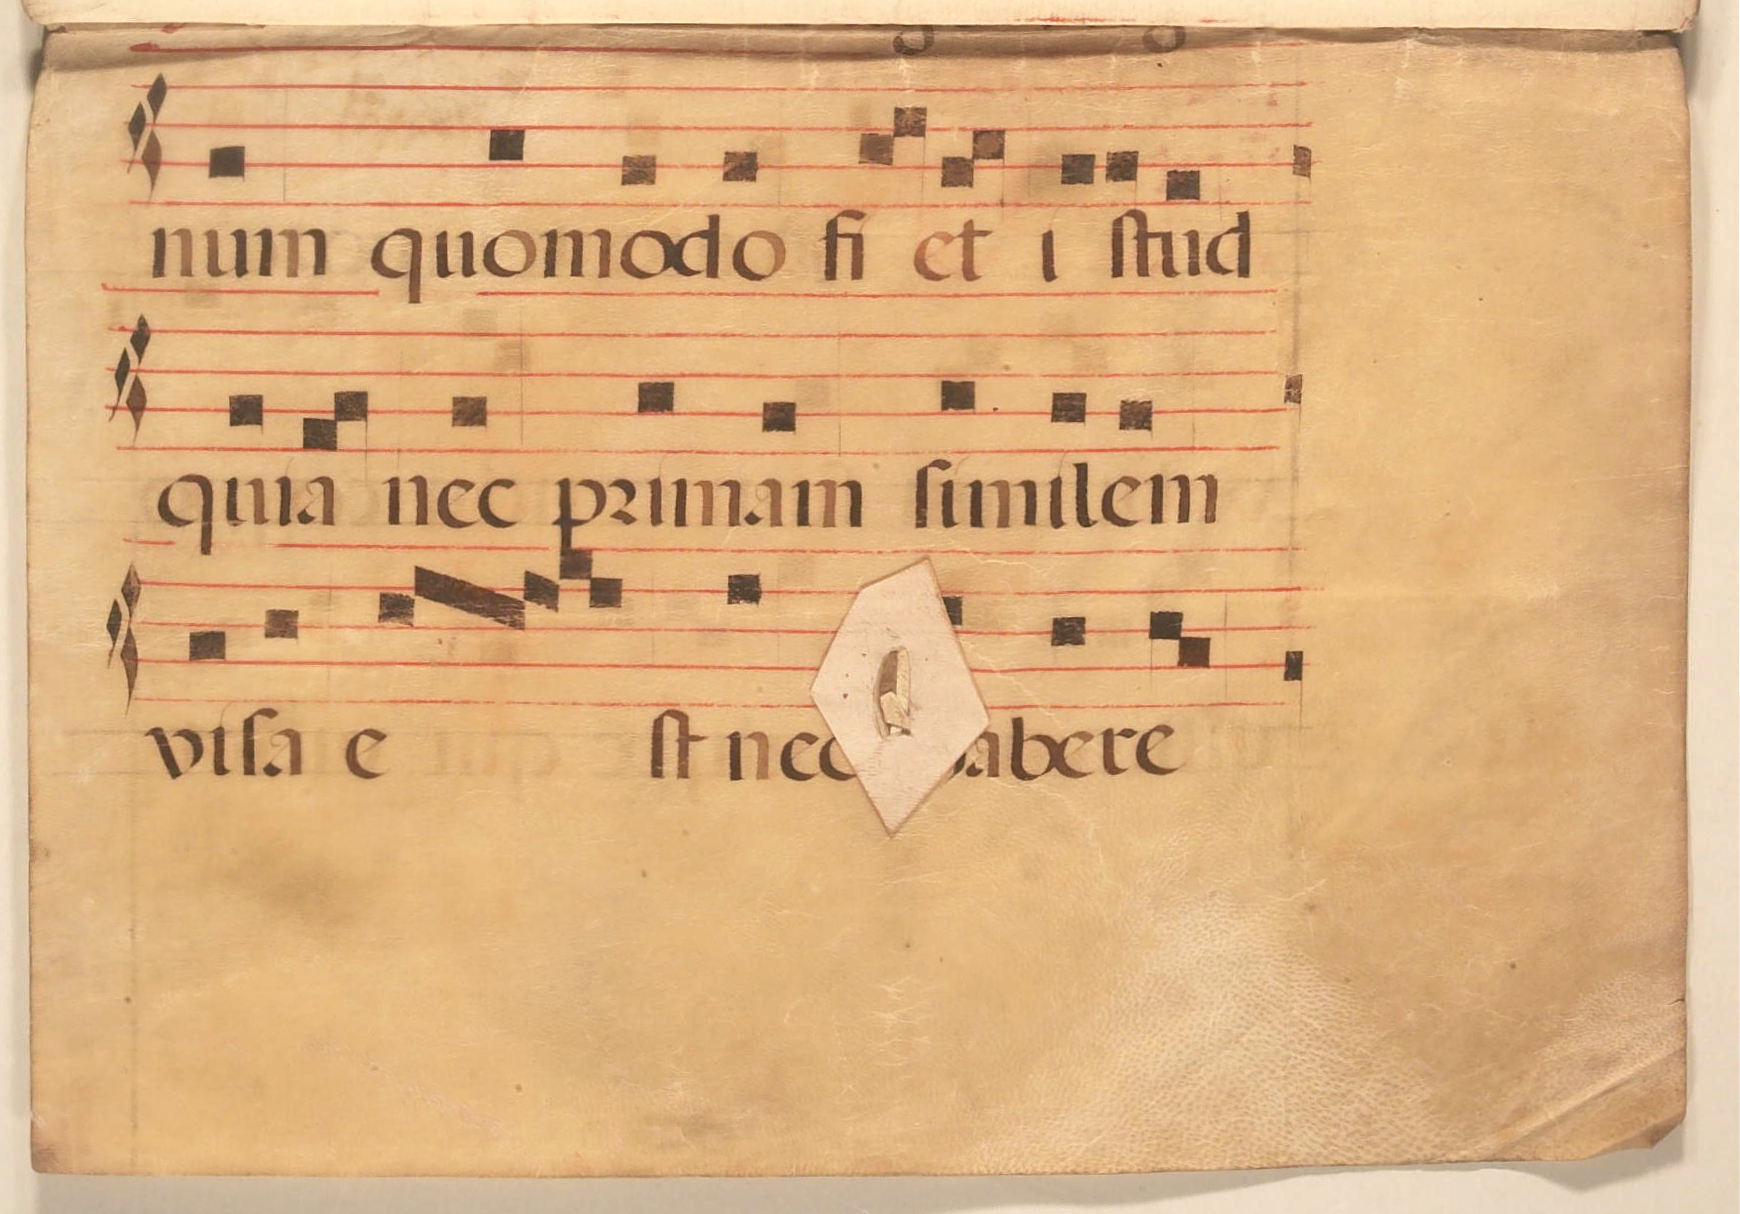 num quomodo fi et i stud
quia nec primam similem
visa e st nec habere